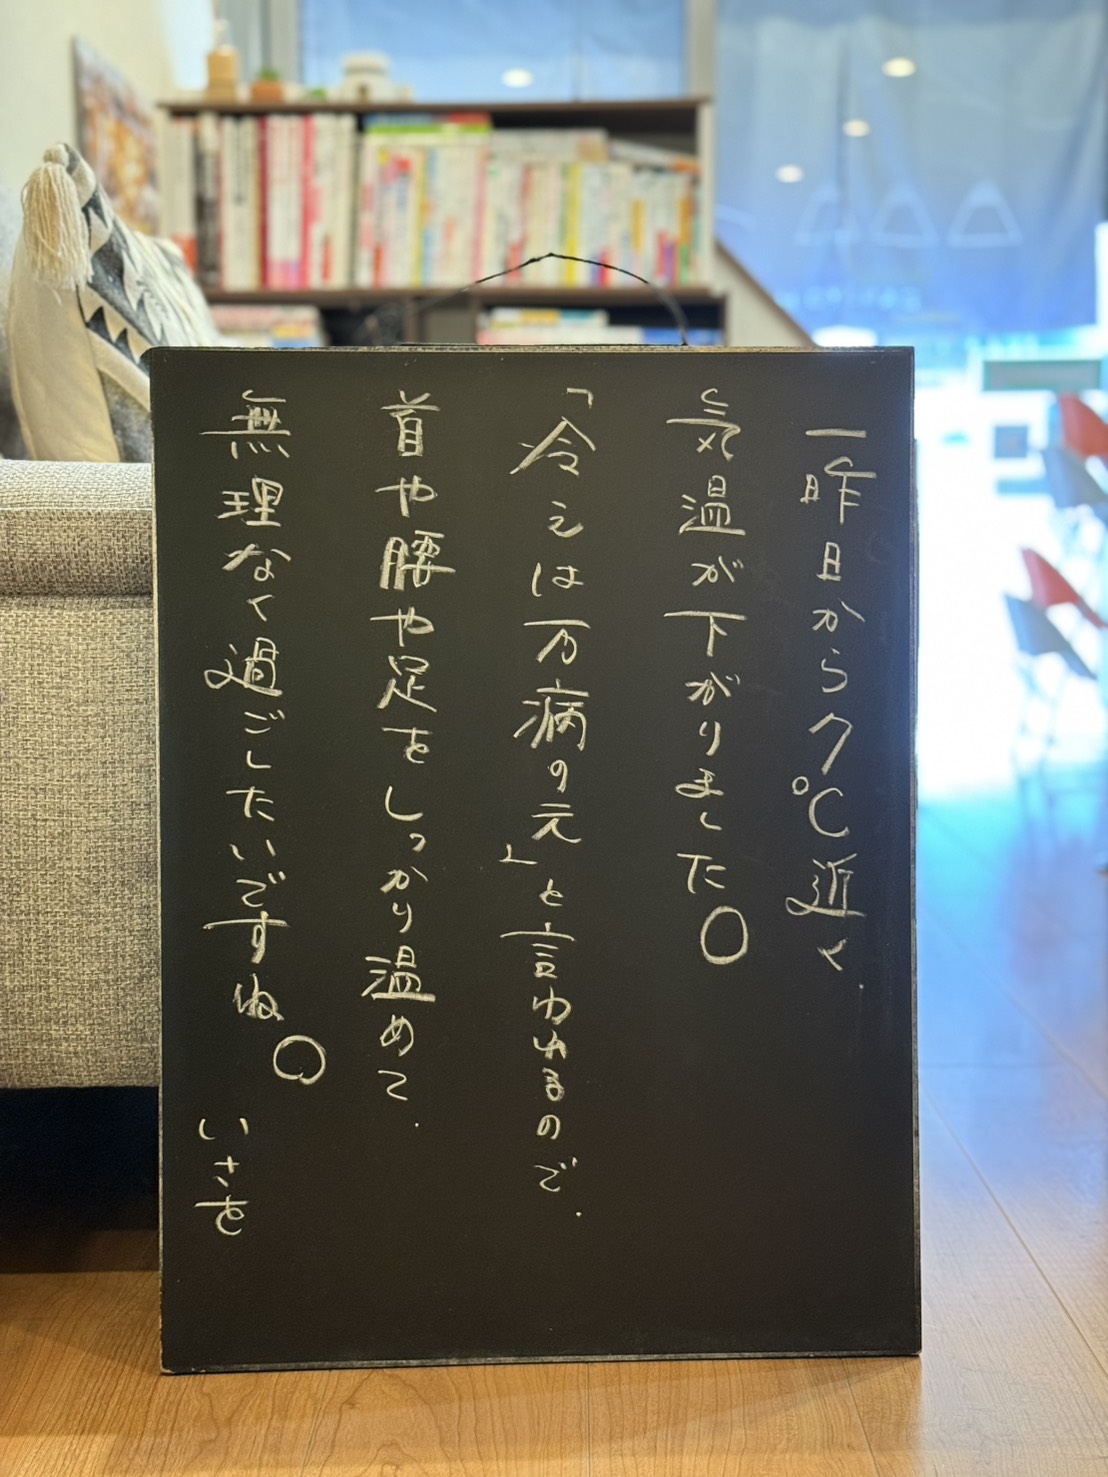 一昨日から7℃近く、
気温が下がりました。
「冷えは万病の元」と言われるので、
首や腰や足をしっかり温めて、
無理なく過ごしたいですね。
いさを